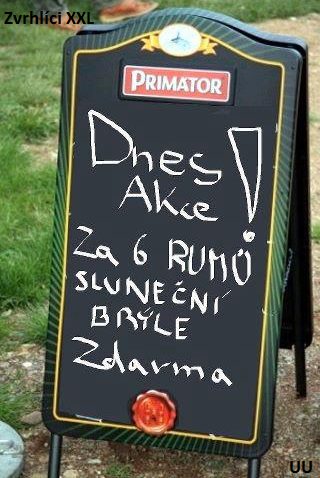 Zvrhlíci XXL
PRIMÁTOR
Dnes
Akce!
Za 6 RUMŮ
SLUNEČNÍ
BRÝLE
Zdarma
UU